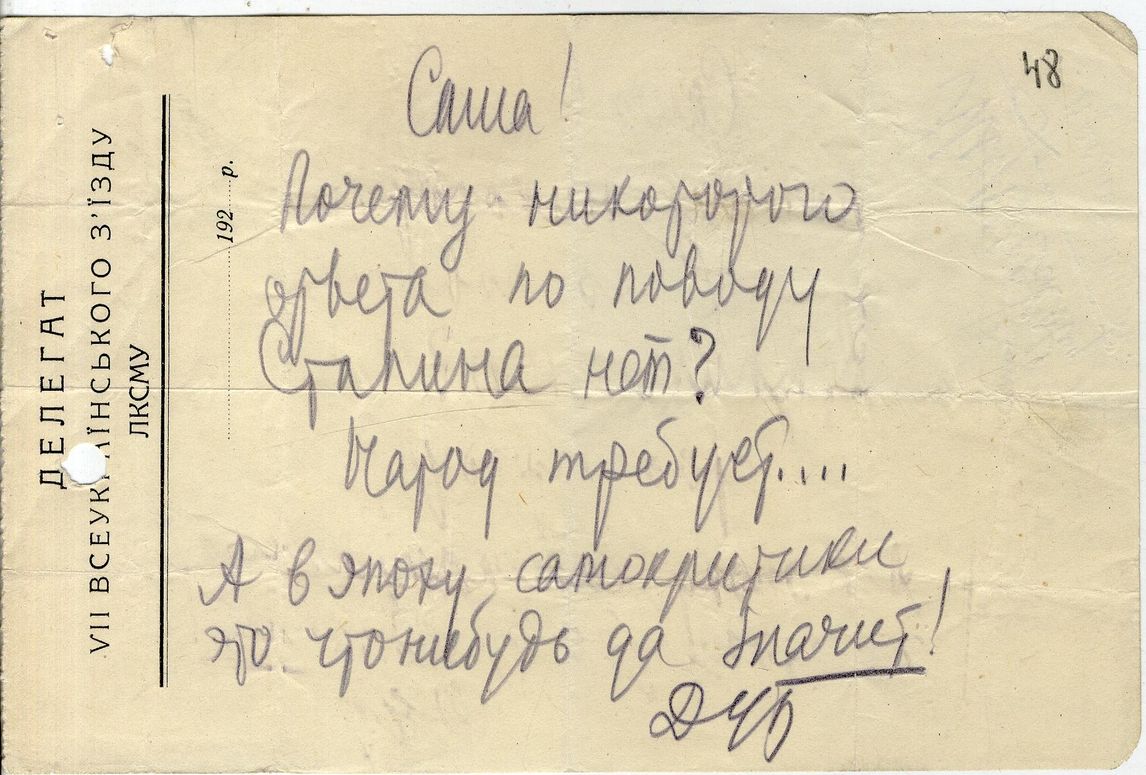 48
ДЕЛЕГАТ
VII ВСЕУКРАЇНСЬКОГО З'ЇЗДУ
ЛКСМУ
192 р.
Саша!
Почему никоторого
ответа по поводу
Сталина нет?
Народ требует....
А в эпоху самокритики
это чтонибудь да значит!